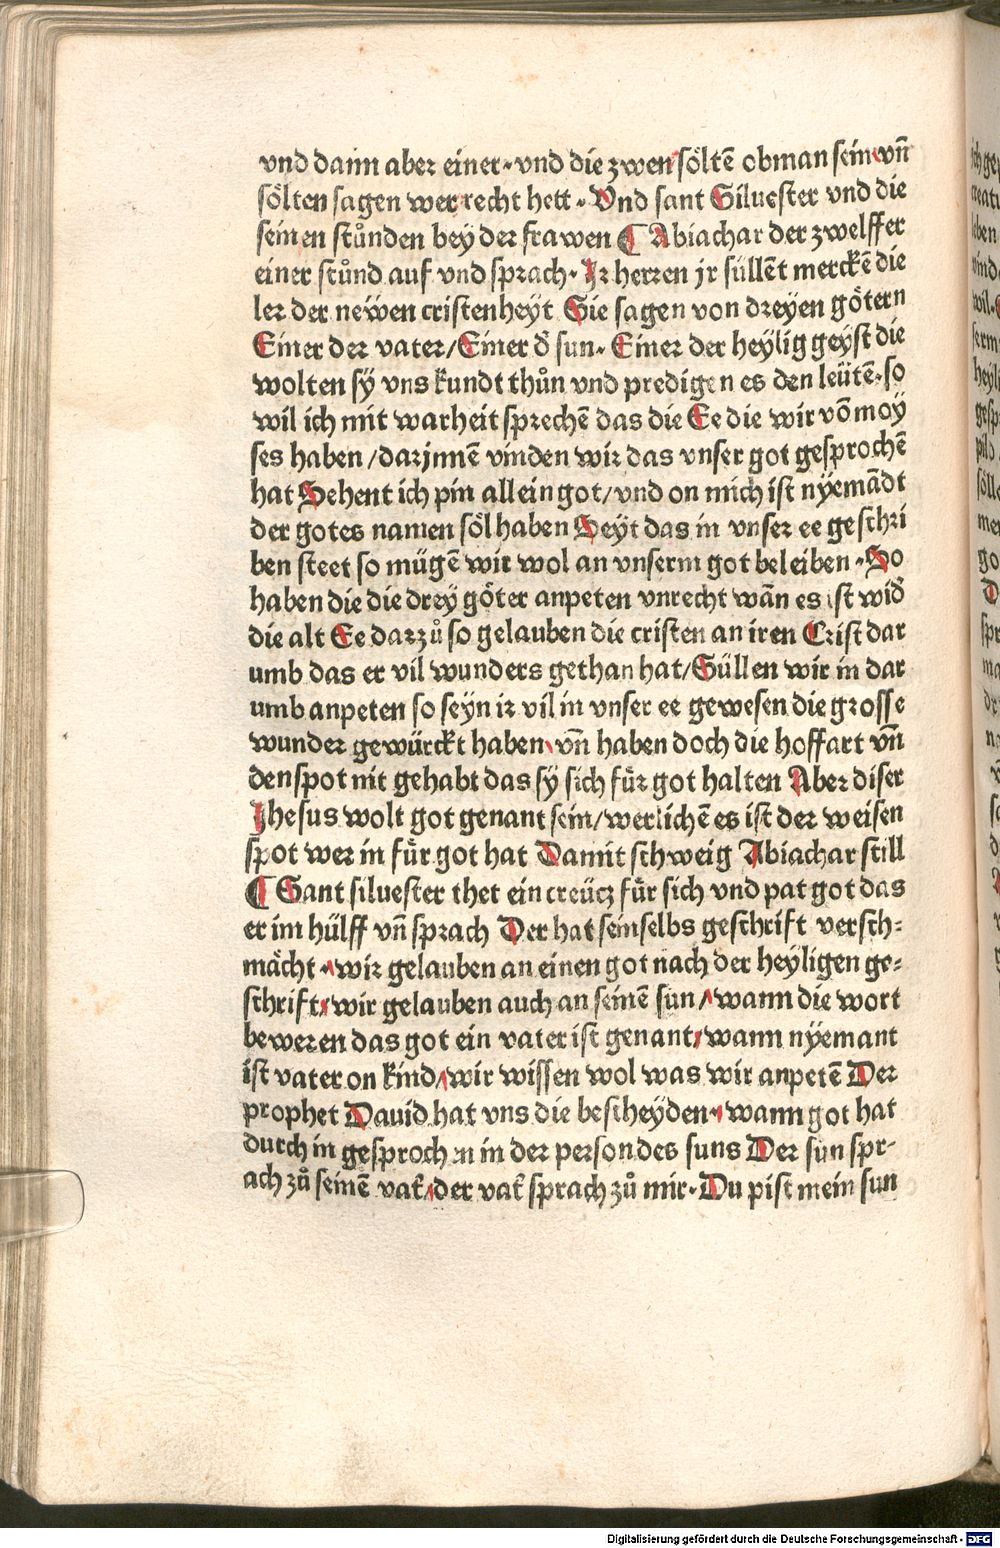 vnd dann aber einer· vnd die zwen sŏltē obman sein vñ
sŏlten sagen wer recht hett· Vnd sant Siluester vnd die
seinen stůnden bey der frawen ¶ Abiachar der zwelffer
einer stůnd auf vnd sprach· Jr herren jr süllēt merckē die
ler der neẅen cristenheyt Sie sagen von dreyen gŏtern
Einer der vater/ Einer d̕ sun· Einer der heylig geyst die
wolten sÿ vns kundt thůn vnd predigen es den leütē· so
wil ich mit warheit sprechē das die Ee die wir vō moÿ
ses haben/ darjnnē vinden wir das vnser got gesprochē
hat Sehent ich pin allein got/ vnd on mich ist nÿemādt
der gotes namen sŏl haben Seyt das in vnser ee geschri
ben steet so mügē wir wol an vnserm got beleiben· So
haben die die drey gŏter anpeten vnrecht wān es ist wid̕
die alt Ee darzů so gelauben die cristen an iren Crist dar
umb das er vil wunders gethan hat/ Süllen wir in dar
umb anpeten so seyn ir vil in vnser ee gewesen die grosse
wunder gewürckt haben, vñ haben doch die hoffart vñ
den spot nit gehabt das sÿ sich für got halten Aber diser
Jhesus wolt got genant sein/ werlichē es ist der weisen
spot wer in für got hat Damit schweig Abiachar still
¶ Sant siluester thet ein creücz für sich vnd pat got das
er im hülff vñ sprach Der hat seinselbs geschrift versch=
mächt· wir gelauben an einen got nach der heyligen ge=
schrift/ wir gelauben auch an seinē sun/ wann die wort
beweren das got ein vater ist genant/ wann nÿemant
ist vater on kind/ wir wissen wol was wir anpetē Der
prophet Dauid hat vns die bescheyden· wann got hat
durch in gesprochen in der person des suns Der sun spr-
ach zů seinē vat̕/ der vat̕ sprach zů mir· Du pist mein sun
Digitalisierung gefördert durch die Deutsche Forschungsgemeinschaft - DFG